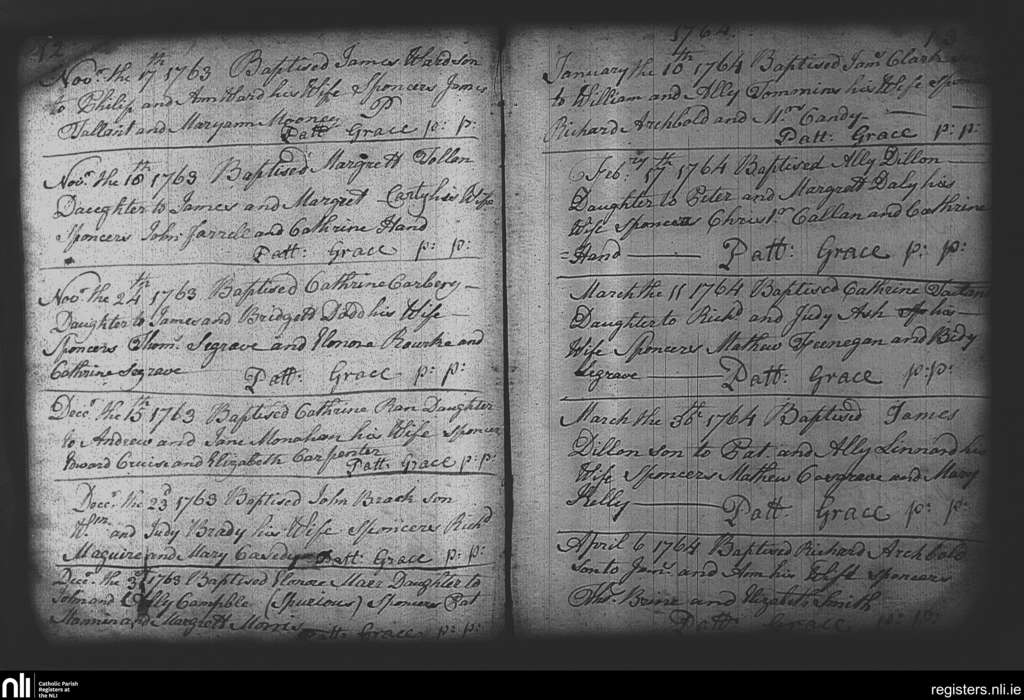 Novr. the 17th 1763 Baptised James Ward son
to Philip and Ann Ward his Wife Sponcers James
Tallant and Maryann Mooney
Patt Grace p: p:
Novr. the 18th 1763 Baptised Margrett Tollan
Daughter to James and Margret Carty his Wife
Sponcers John Farrell and Cathrine Hand
Patt: Grace p: p:
Novr. the 24th 1763 Baptised Cathrine Carbery
Daughter to James and Bridgett Dodd his Wife
Sponcers Thoms. Segrave and Elonora Rourke and
Cathrine Segrave Patt: Grace p: p:
Decr. the 15th 1763 Baptised Cathrine Ran Daughter
to Andrew and Jane Monahan his Wife Sponcer
Edward Cruise and Elizabeth Carpenter
Patt: Grace p: p:
Decr. the 23d 1763 Baptised John Brack son
Wm. and Judy Brady his Wife Sponcers Richd
Maguire and Mary Casedy Patt: Grace p: p:
Decr. the 1763 Baptised Daughter to
John and Campble (Spurious) Sponcers Pat
Mannin and Margrett Morris
Patt: Grace p: p:
1764
January the 10th 1764 Baptised Jams Clark
to William and Ally Tommins his Wife Spon
Richard Archbold and Mrs Candy
Patt: Grace p: p:
Febry 17th 1764 Baptised Ally Dillon
Daughter to Peter and Margrett Daly his
Wife Sponcers Christr Callan and Cathrine
=Hand Patt: Grace p: p:
March the 11 1764 Baptised Cathrine
Daughter to Richd and Judy Ash his
Wife Sponcers Mathew Feenegan and Bidy
Segrave Patt: Grace p:p:
March the 30th 1764 Baptised James
Dillon son to Pat. and Ally Linnard his
Wife Sponcers Mathew Cosgrave and Mary
Kelly Patt Grace p: p:
April 6 1764 Baptised Richard Archbold
Son to Jams. and Ann his Wife Sponcers
Thos. Beine and Elizabeth Smith
Patt: Grace p: p:
nli
Catholic Parish
Registers at
the NLI
registers.nli.ie